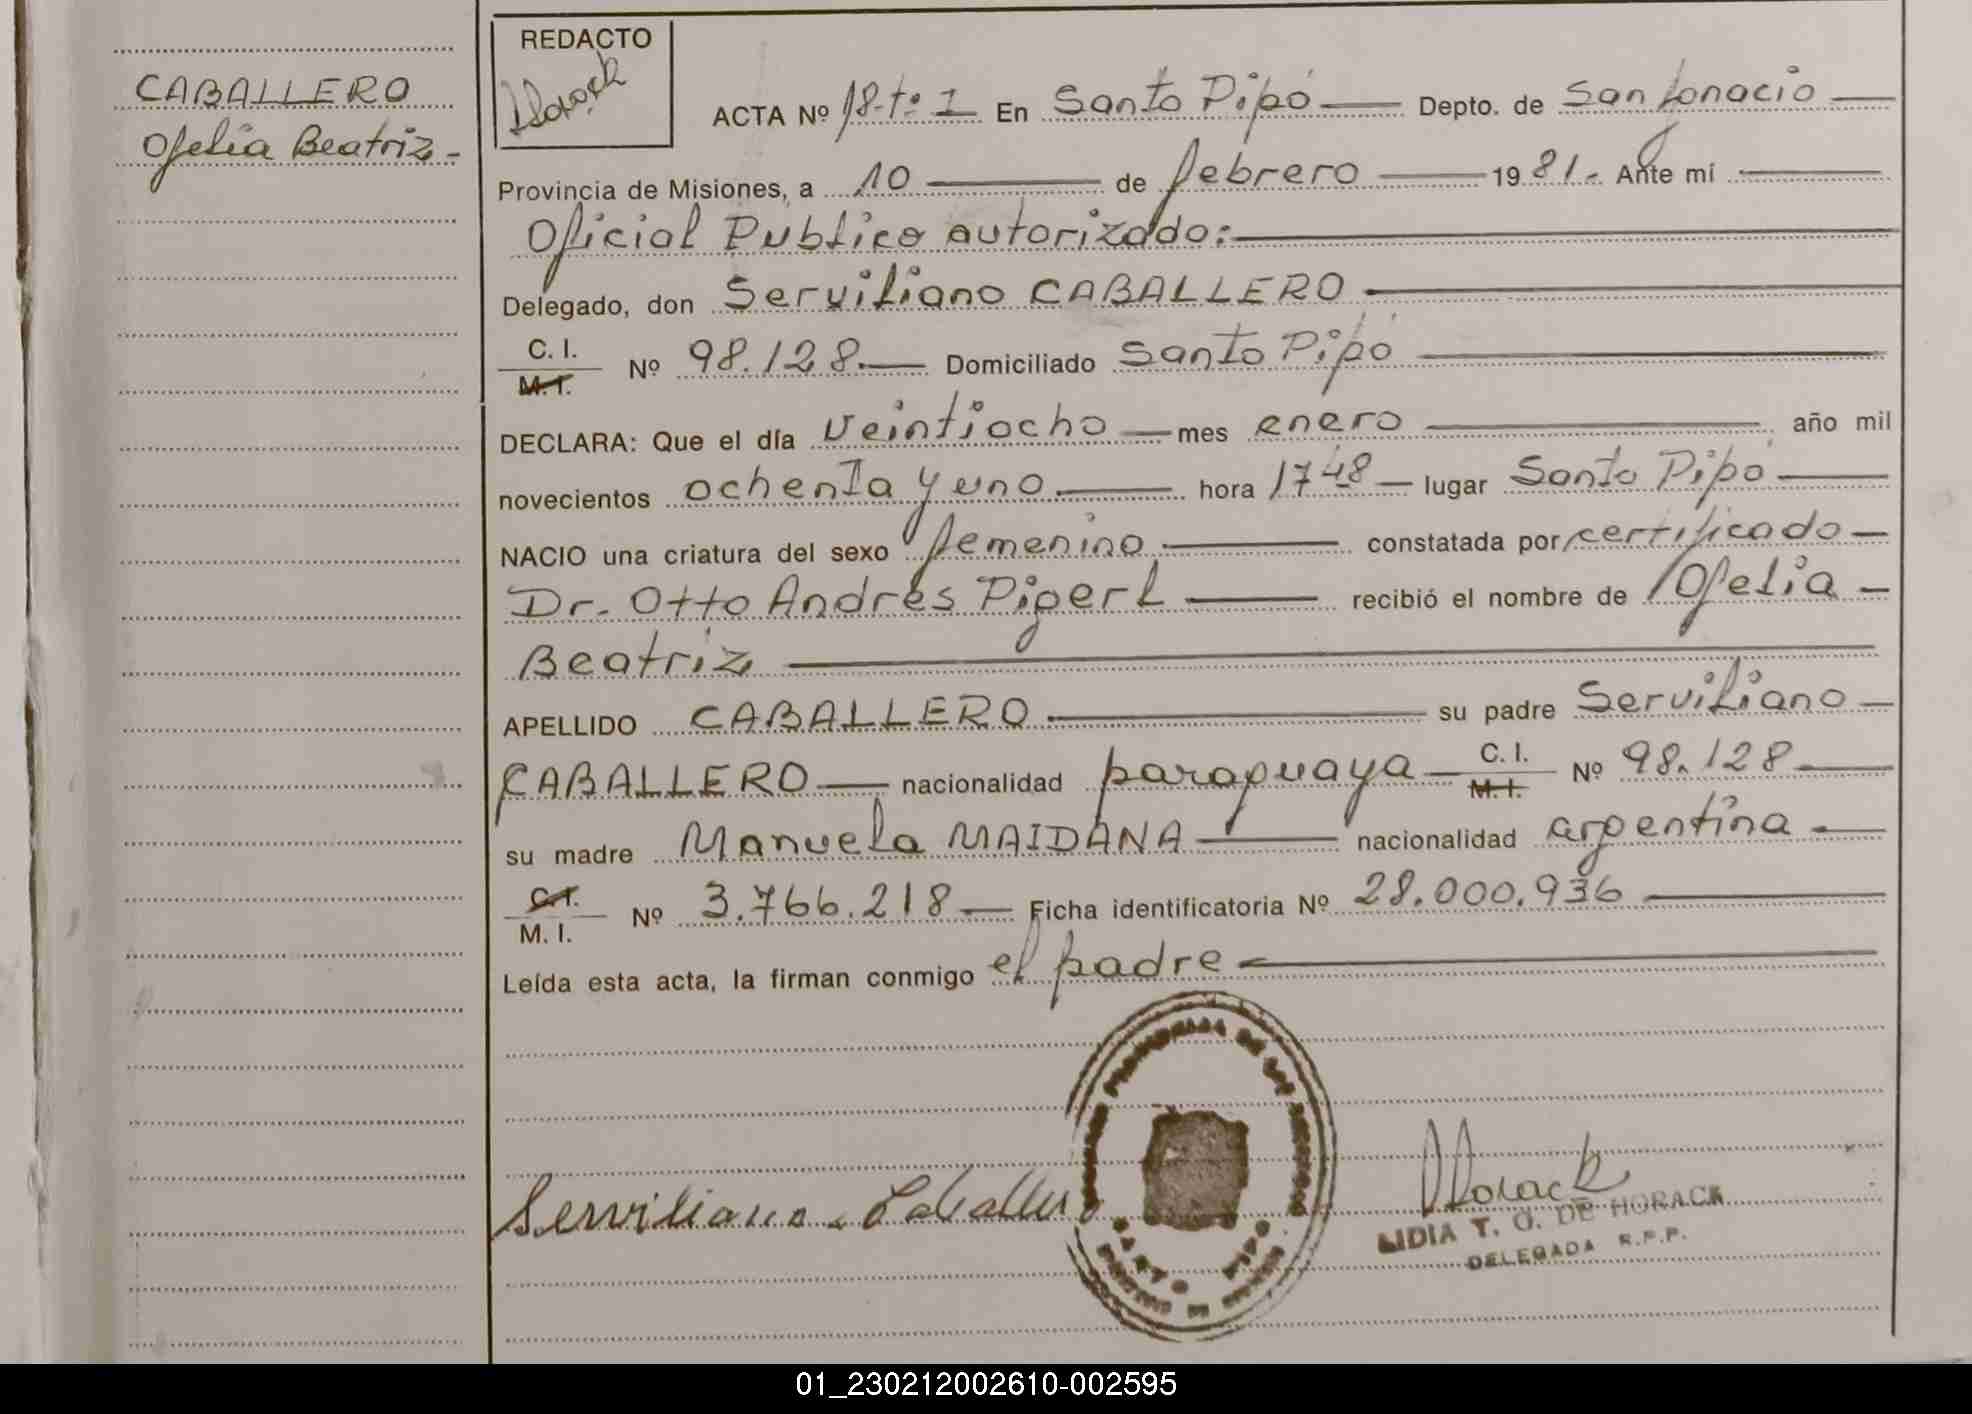 CABALLERO
Ofelia Beatriz-
REDACTO
Horack
ACTA Nº 18-tº I En Santo Pipó Depto. de San Ignacio
Provincia de Misiones, a 10 de febrero 1981.- Ante mí
Oficial Publico autorizado:
Delegado, don Serviliano CABALLERO
C. I. M. I. Nº 98.128. Domiciliado Santo Pipó
DECLARA: Que el día veintiocho mes enero año mil
novecientos ochenta y uno hora 17 48 lugar Santo Pipó
NACIO una criatura del sexo femenino constatada por certificado
Dr. Otto Andrés Pigerl recibió el nombre de Ofelia
Beatriz
APELLIDO CABALLERO su padre Serviliano
CABALLERO nacionalidad paraguaya C. I. M. I. Nº 98.128
su madre Manuela MAIDANA nacionalidad argentina
C. I. M. I. Nº 3.766.218 Ficha identificatoria Nº 28.000.936
Leída esta acta, la firman conmigo el padre
PROVINCIA DE
SANTO PIPO
Serviliano Caballero
Horack
LIDIA T. O. DE HORACK
DELEGADA R.P.P.
01_230212002610-002595